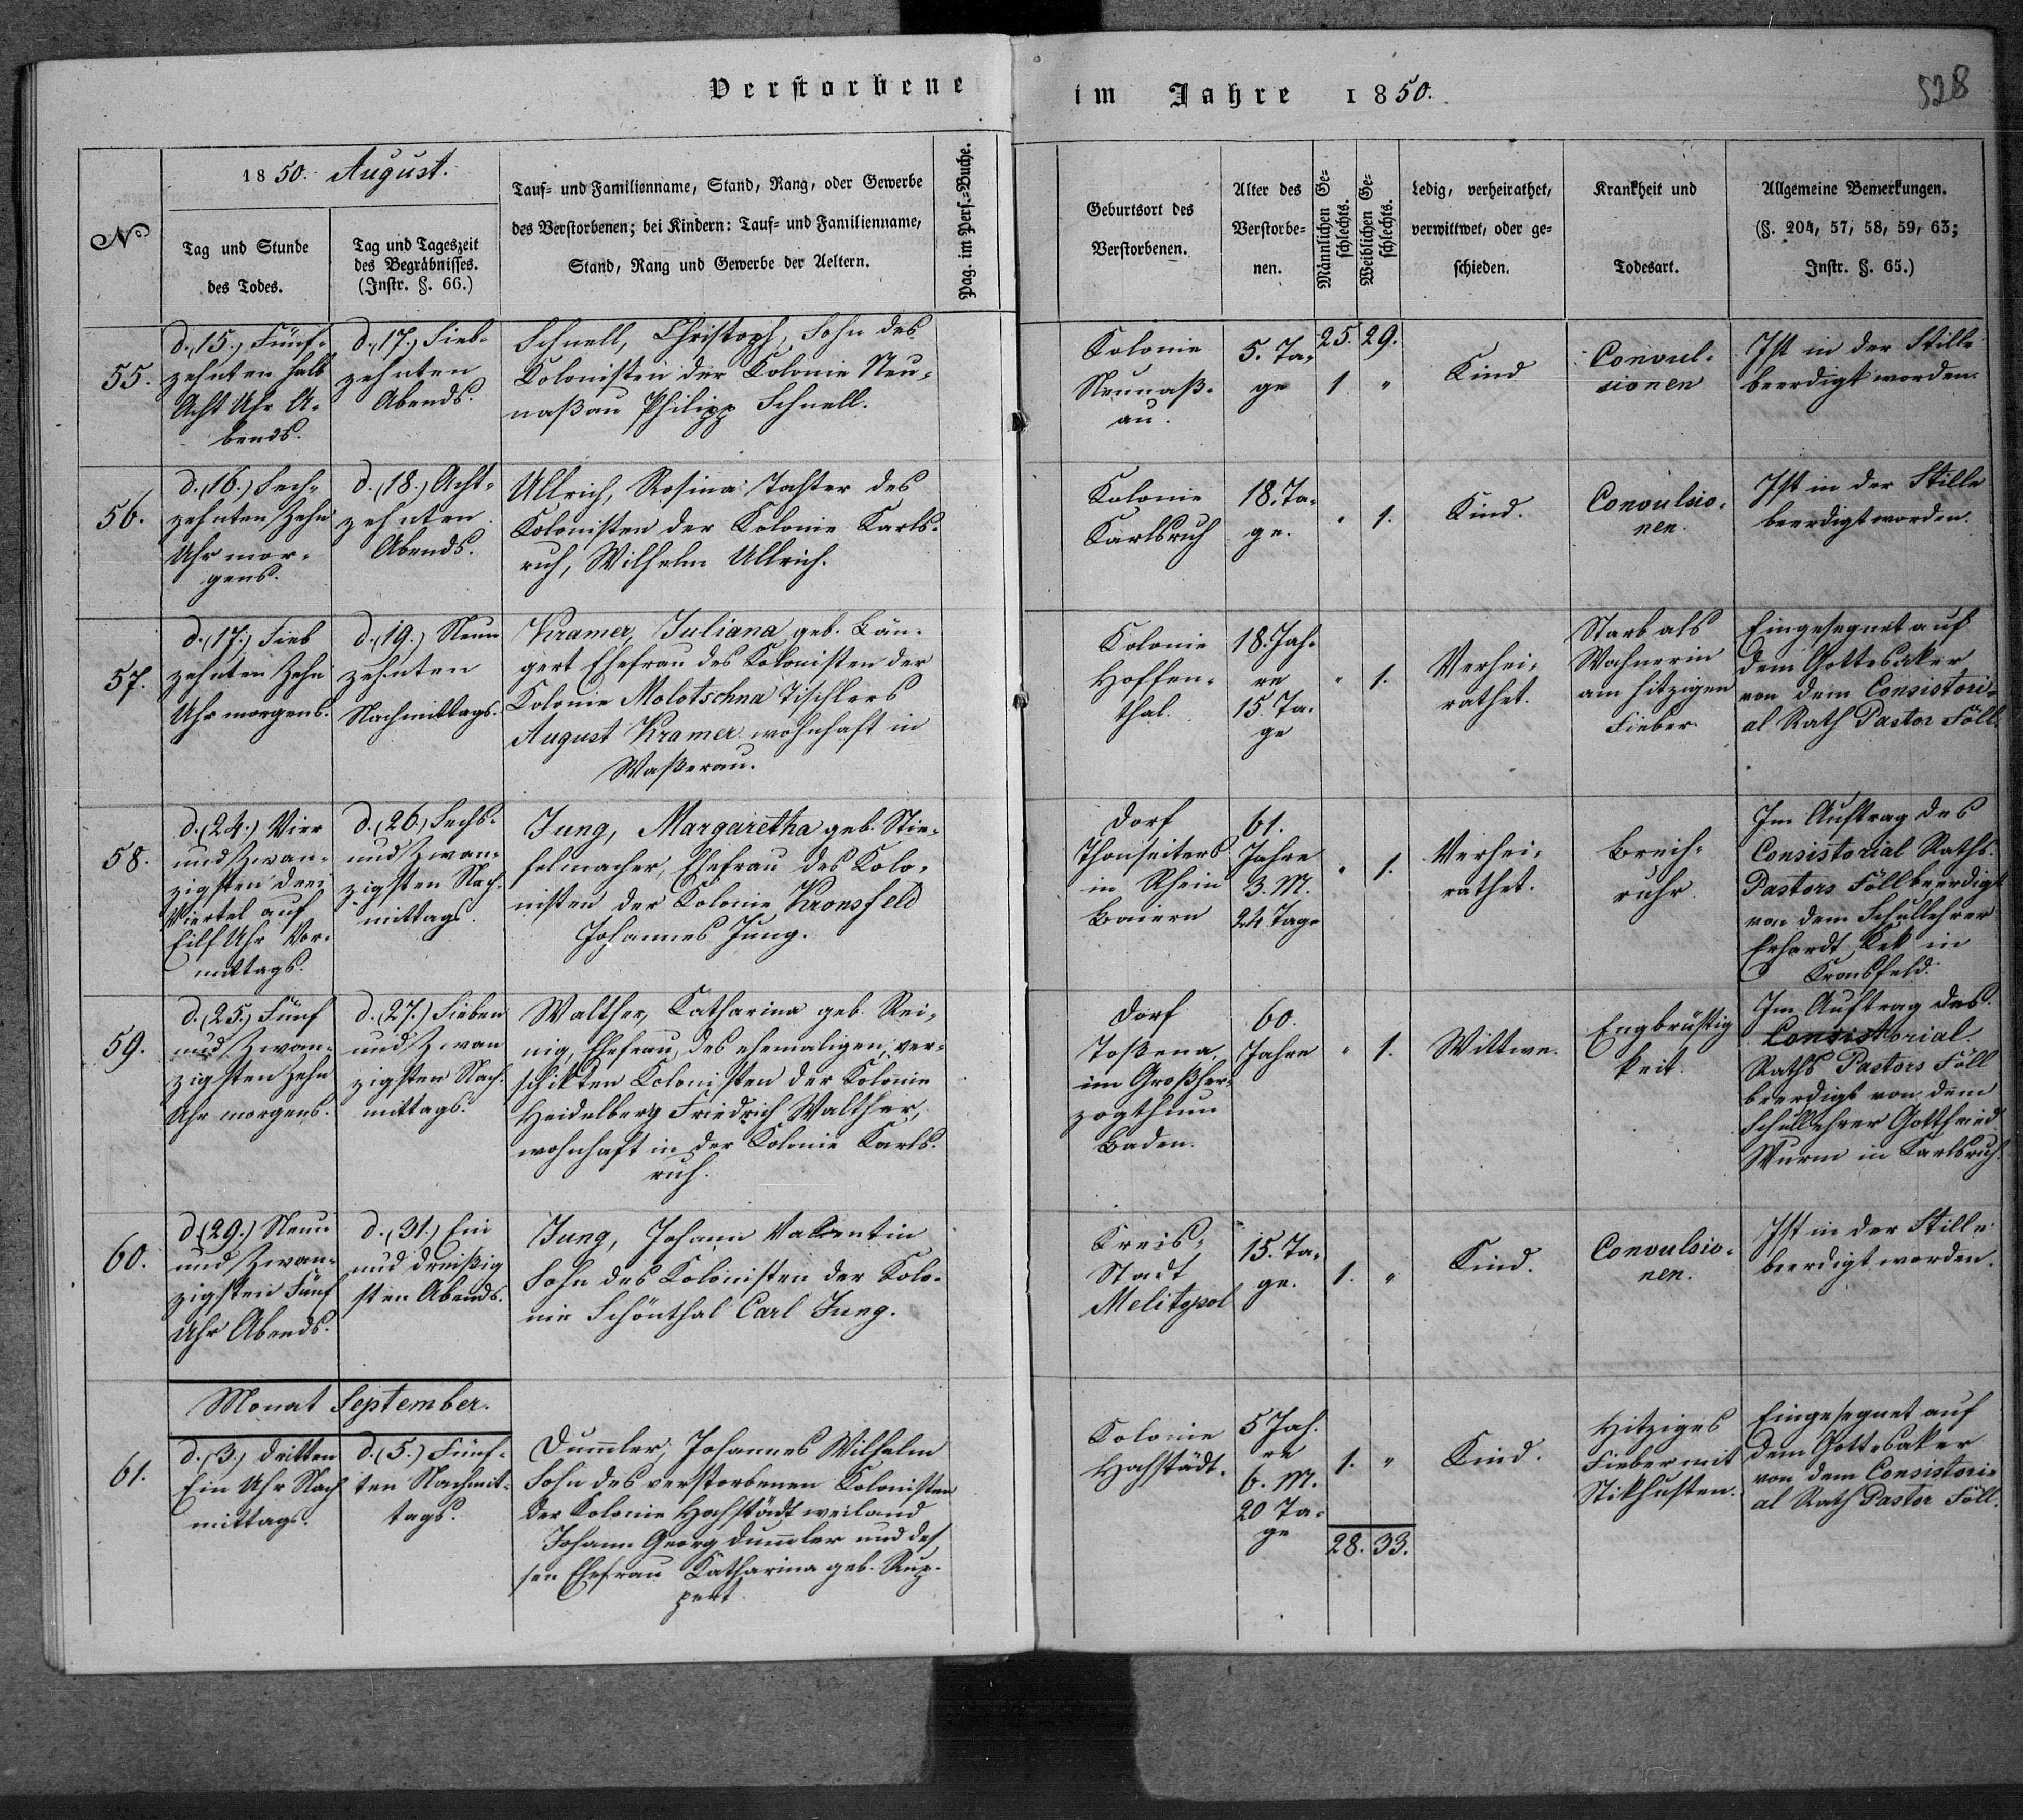 Verstorbene im Jahre 1850.
528
1850. August.
No
Tag und Stunde
des Todes.
Tag und Tageszeit
des Begräbnisses.
(Instr. §. 66.)
Tauf- und Familienname, Stand, Rang, oder Gewerbe
des Verstorbenen; bei Kindern: Tauf- und Familienname,
Stand, Rang und Gewerbe der Aeltern.
Pag. im Pers.-Buche.
Geburtsort des
Verstorbenen.
Alter des
Verstorbe-
nen.
Männlichen Ge-
schlechts.
Weiblichen Ge-
schlechts.
Ledig, verheirathet,
verwittwet, oder ge-
schieden.
Krankheit und
Todesart.
Allgemeine Bemerkungen.
(§. 204, 57, 58, 59, 63;
Instr. §. 65.)
55.
d. (15.) Fünf-
zehnten halb
Acht Uhr A-
bends.
d. (17.) Sieb-
zehnten
Abends.
Schnell, Christoph, Sohn des
Kolonisten der Kolonie Neu-
naßau Philipp Schnell.
Kolonie
Neunaß-
au.
5. Ta-
ge
25. 29.
1 "
Kind
Convul-
sionen
Ist in der Stille
beerdigt worden.
56.
d. (16.) Sech-
zehnten Zehn
Uhr mor-
gens.
d. (18.) Acht-
zehnten
Abends.
Ullrich, Rosina Tochter des
Kolonisten der Kolonie Karls-
ruh, Wilhelm Ullrich.
Kolonie
Karlsruh
18. Ta-
ge.
" 1.
Kind.
Convulsio-
nen.
Ist in der Stille
beerdigt worden.
57.
d. (17.) Sieb
zehnten Zehn
Uhr morgens.
d. (19.) Neun
zehnten
Nachmittags.
Kramer, Juliana geb. Län-
gert Ehefrau des Kolonisten der
Kolonie Molotschna Tischlers
August Kramer wohnhaft in
Waßerau.
Kolonie
Hoffen-
thal.
18. Jah-
re
15. Ta-
ge
" 1.
Verhei-
rathet.
Starb als
Wöhnerin
am hitzigen
Fieber.
Eingesegnet auf
dem Gottesaker
von dem Consistori-
al Rath Pastor Föll
58.
d. (24.) Vier
und Zwan-
zigsten drei
Viertel auf
Eilf Uhr Vor-
mittags.
d. (26.) Sechs-
und Zwan-
zigsten Nach-
mittags.
Jung, Margaretha geb. Stie-
felmacher, Ehefrau des Kolo-
nisten der Kolonie Kronsfeld
Johannes Jung.
Dorf
in Rhein
Baiern
61.
Jahre
3. M.
24 Tage
" 1.
Verhei-
rathet.
Brech-
ruhr
Im Auftrag des
Consistorial Raths
Pastors Föll beerdigt
von dem Schullehrer
Erhardt Kek in
Kronsfeld.
59.
d. (25.) Fünf
und Zwan-
zigsten Zehn
Uhr morgens.
d. (27.) Sieben
und Zwan
zigsten Nach-
mittags.
Walther, Katharina geb. Rei-
nig, Ehefrau, des ehemaligen, ver-
schikten Kolonisten der Kolonie
Heidelberg Friedrich Walther,
wohnhaft in der Kolonie Karls-
ruh.
Dorf
im Großher-
zogthum
Baden.
60.
Jahre
" 1.
Wittwe.
Engbrüstig
keit.
Im Auftrag des
Consistorial
Raths Pastors Föll
beerdigt von dem
Schullehrer Gottfried
Wurm in Karlsruh.
60.
d. (29.) Neun
und Zwan-
zigsten Fünf
Uhr Abends.
d. (31.) Ein
und dreißig
sten Abends.
Jung, Johann Valentin
Sohn des Kolonisten der Kolo-
nie Schönthal Carl Jung.
Kreis-
Stadt
Melitopol
15. Ta-
ge.
1. "
Kind.
Convulsio-
nen.
Ist in der Stille
beerdigt worden.
Monat September.
61.
d. (3.) dritten
Ein Uhr Nach
mittags.
d. (5.) Fünf-
ten Nachmit-
tags.
Dum̄ler, Johannes Wilhelm
Sohn des verstorbenen Kolonisten
der Kolonie Hochstädt weiland
Johann Georg Dum̄ler und des,
sen Ehefrau Katharina geb. Rup-
pert
Kolonie
Hochstädt.
5 Jah-
re
6. M.
20 Ta-
ge
1. "
28. 33.
Kind.
Hitziges
Fieber mit
Stikhusten.
Eingesegnet auf
dem Gottesaker
von dem Consistori-
al Rath Pastor Föll.